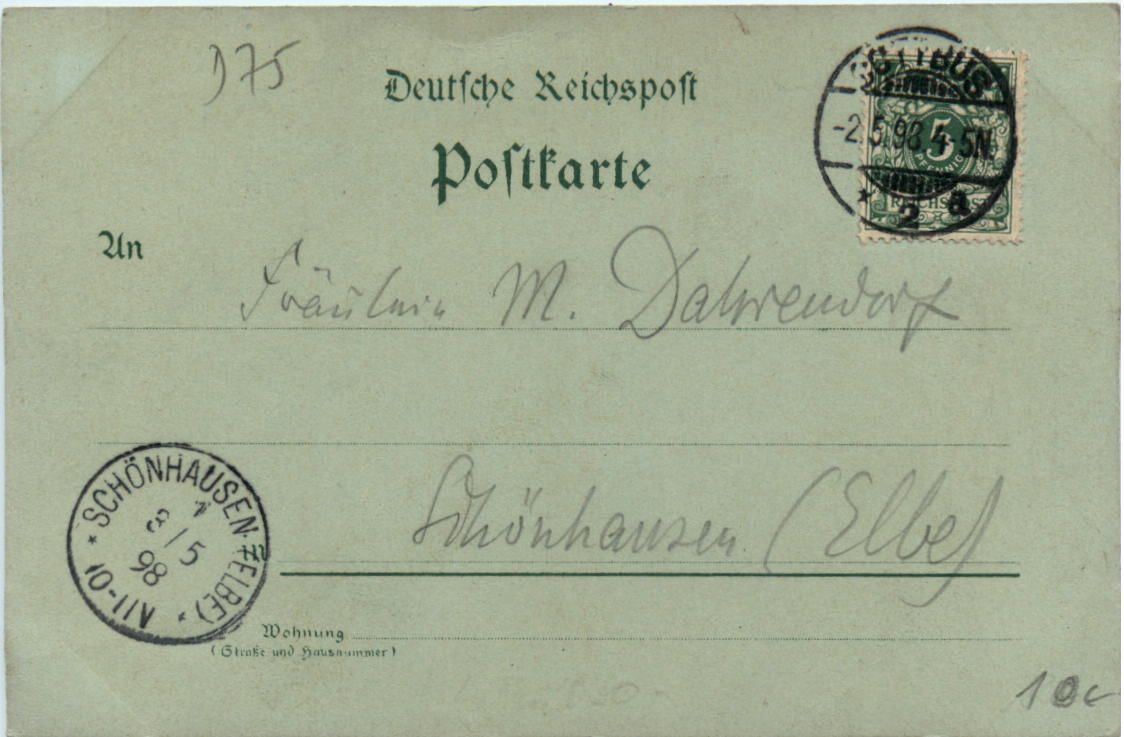 D75
Deutsche Reichspost
Postkarte
COTTBUS
-2.5.98.4-5N.
* 2 a
5
PFENNIG
REICHSPOST
An
Fräulein M. Dahrendorf
Schönhausen (Elbe)
* SCHÖNHAUSEN (ELBE) *
3/5
98
10-11V
Wohnung
(Straße und Hausnummer)